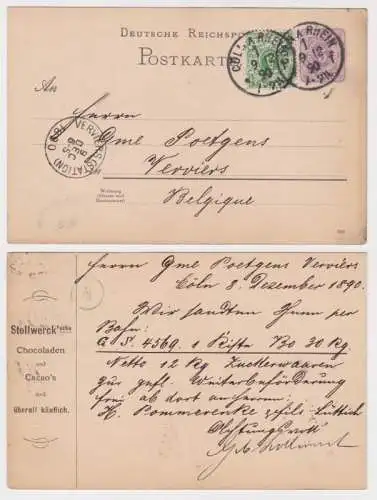 DEUTSCHE REICHSPOST
POSTKARTE
CÖLN A. RHEIN
9
12
90
An
Herrn
Gme Poetgens
Verviers
Belgique
VERVIERS (STATION)
9
DEC
1890
Wohnung
(Strasse und
Hausnummer)
Herrn Gme Poetgens Verviers
Cöln 8. Dezember 1890.
Wir sandten Ihnen per
Bahn:
G S. 4569. 1 Kiste Bo 20 Kg
Netto 12 Kg Zuckerwaaren
zur gefl. Weiterbeförderung
frei ab dort an Herrn:
H. Pommerenke & fils - Lüttich
Achtungsvoll
Stollwerck'sche
Chocoladen
und
Cacao's
sind
überall käuflich.